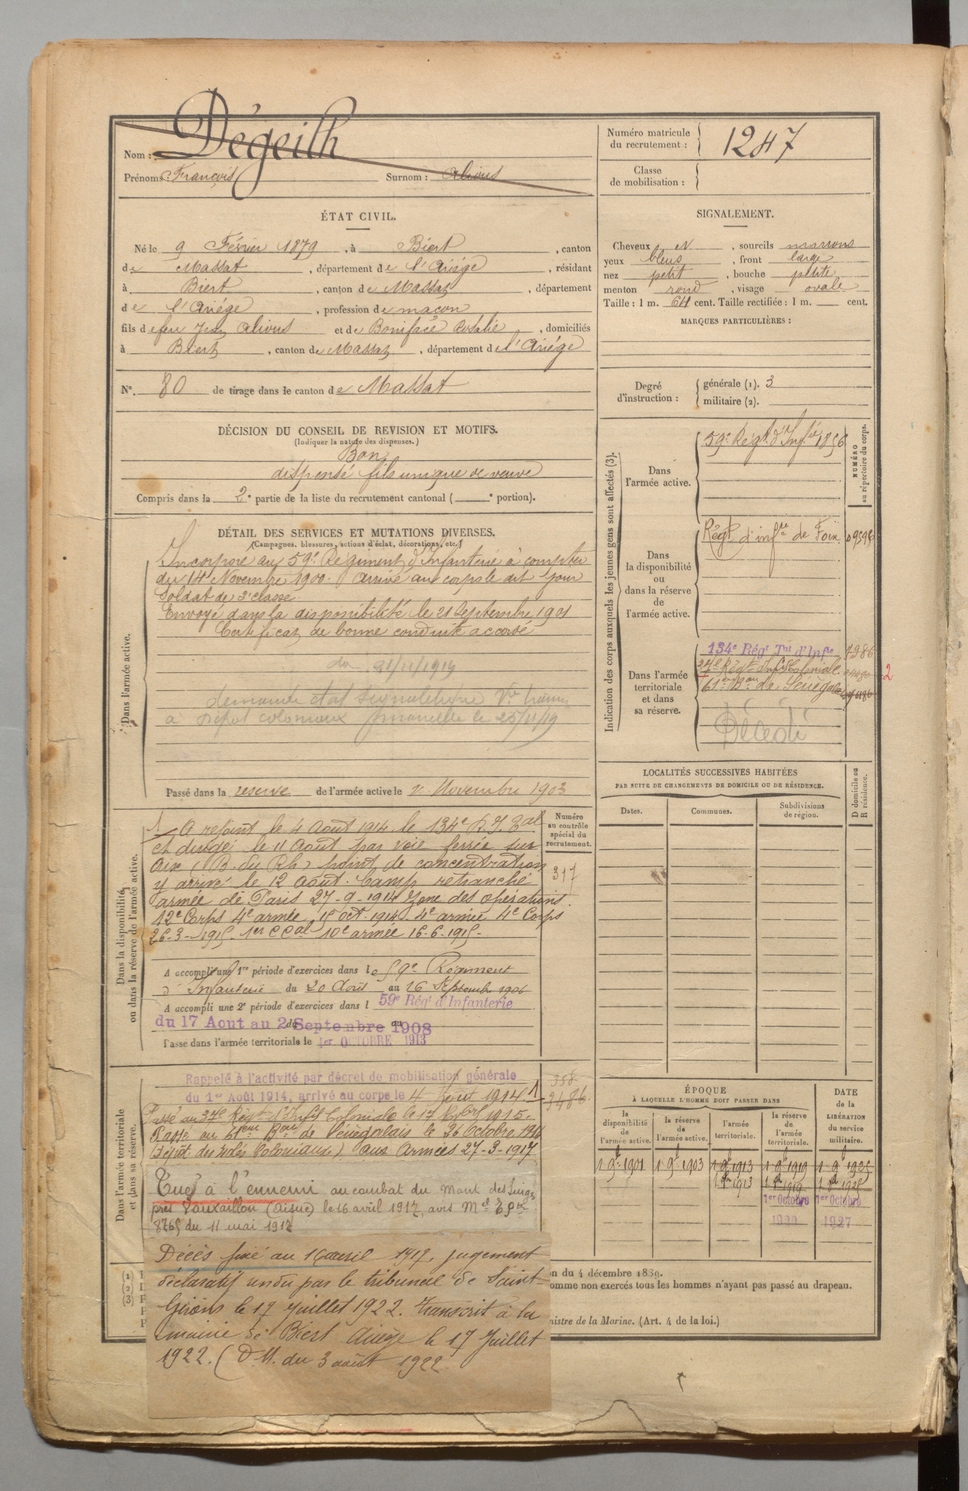 Nom : Dégeilh
Prénoms : François Surnom : Alious
Numéro matricule du recrutement : 1247
Classe de mobilisation :
ÉTAT CIVIL.
Né le 9 Février 1879, à Biert, canton
de Massat, département de l'Ariège, résidant
à Biert, canton de Massat, département
de l'Ariége, profession de maçon
fils de feu Jean Alious et de Boniface Rosalie, domiciliés
à Biert, canton de Massat, département de l'Ariége
N°. 80 de tirage dans le canton de Massat
SIGNALEMENT.
Cheveux N, sourcils marrons
yeux bleus, front large
nez petit, bouche petite
menton rond, visage ovale
Taille : 1 m. 64 cent. Taille rectifiée : 1 m. cent.
MARQUES PARTICULIÈRES :
Degré d'instruction : générale (1). 3
militaire (2).
DÉCISION DU CONSEIL DE REVISION ET MOTIFS.
(Indiquer la nature des dispenses.)
Bon
dispensé fils unique de veuve
Compris dans la 2e partie de la liste du recrutement cantonal ( e portion).
DÉTAIL DES SERVICES ET MUTATIONS DIVERSES.
(Campagnes, blessures, actions d'éclat, décorations, etc.)
Dans l'armée active.
Incorporé au 59e Régiment d'Infanterie à compter
du 14 Novembre 1900. Arrivé au corps le dit jour
Soldat de 2e classe
Envoyé dans la disponibilité le 21 Septembre 1901
Certificat de bonne conduite accordé
du 21/11/1919
demande état signalétique
à Dépôt coloniaux Marseille le 25/11/19
Passé dans la réserve de l'armée active le 1er Novembre 1903
Indication des corps auxquels les jeunes gens sont affectés (3).
NUMÉRO au répertoire du corps.
Dans l'armée active.
59e Régt d'Infie 1856
Dans la disponibilité ou dans la réserve de l'armée active.
Régt d'infie de Foix
Dans l'armée territoriale et dans sa réserve.
134e Régt Tal d'Infie
24e Régt Inf Coloniale
61e Bon de Sénégalais
2
Décédé
LOCALITÉS SUCCESSIVES HABITÉES
PAR SUITE DE CHANGEMENTS DE DOMICILE OU DE RÉSIDENCE.
D domicile ou R résidence.
Dates. Communes. Subdivisions de région.
Dans la disponibilité ou dans la réserve de l'armée active.
Numéro au contrôle spécial du recrutement.
317
A rejoint le 4 Août 1914 le 134e R.I. Tal
et dirigé le 11 Août par voie ferrée sur
Aix (B. du Rh.) point de concentration
y arrivé le 12 Août. Camp retranché
armée de Paris 27-9-1914 Zone des opérations.
12e Corps 4e armée, 15 oct. 1914 4e armée 4e Corps
26-3-1915 1er CCal 10e armée 16-6-1915-
A accompli une 1re période d'exercices dans le 59e Régiment
d'Infanterie du 20 Août au 16 Septembre 1906
A accompli une 2e période d'exercices dans l 59e Régt d'Infanterie
du 17 Aout au 2 Septembre 1908
Passé dans l'armée territoriale le 1er OCTOBRE 1913
Dans l'armée territoriale et dans sa réserve.
Rappelé à l'activité par décret de mobilisation générale
du 1er Août 1914, arrivé au corps le 4 Août 1914
Passé au 24e Régt d'Infie Coloniale le 17 1915
Passé au 61eme Bon de Sénégalais le 26 Octobre 1916
(Dépôt des Isolés Coloniaux) Aux Armées 27-3-1917
Tué à l'ennemi au combat du Mont des Singes
près Vauxaillon (Aisne) le 16 avril 1917, avis Mel
8765 du 11 mai 1917
Décès fixé au 16 avril 1917, jugement
déclaratif rendu par le tribunal de Saint-
Girons le 17 Juillet 1922. transcrit à la
mairie de Biert Ariège le 17 Juillet
1922. (D.M. du 3 août 1922
ÉPOQUE
À LAQUELLE L'HOMME DOIT PASSER DANS
DATE de la LIBÉRATION du service militaire.
la disponibilité de l'armée active.
la réserve de l'armée active.
l'armée territoriale.
la réserve de l'armée territoriale.
1 9bre 1901 1 9bre 1903 1 9bre 1913 1 9bre 1919 1 9bre 1925
1er Octobre 1er Octobre
1927
n du 4 décembre 1889.
omme non exercés tous les hommes n'ayant pas passé au drapeau.
nistre de la Marine. (Art. 4 de la loi.)